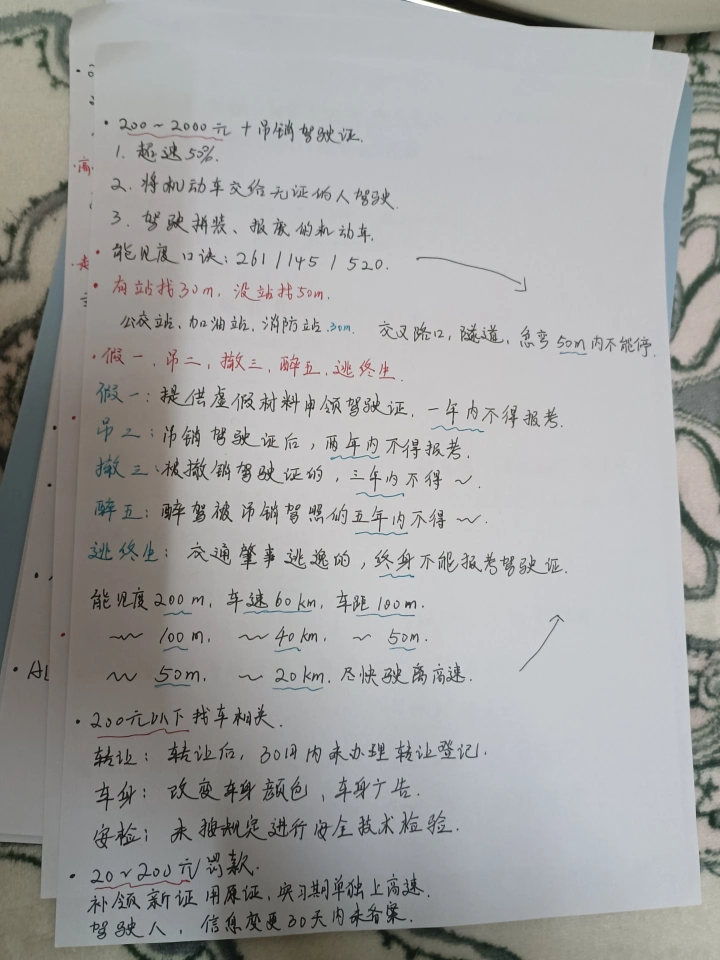 • 200~2000元 + 吊销驾驶证.
1. 超速50%.
2. 将机动车交给无证的人驾驶.
3. 驾驶拼装、报废的机动车.
• 能见度口诀: 261 / 145 / 520.
• 有站找30m, 没站找50m.
公交站、加油站、消防站.30m. 交叉路口, 隧道, 急弯50m内不能停.
• 假一、吊二, 撤三, 醉五, 逃终生.
假一: 提供虚假材料申领驾驶证, 一年内不得报考.
吊二: 吊销驾驶证后, 两年内不得报考.
撤三: 被撤销驾驶证的, 三年内不得 ~.
醉五: 醉驾被吊销驾照的五年内不得 ~.
逃终生: 交通肇事逃逸的, 终身不能报考驾驶证.
能见度200m, 车速60km, 车距100m.
~ 100m, ~ 40km, ~ 50m.
~ 50m. ~ 20km, 尽快驶离高速.
• 200元以下找车相关.
转让: 转让后, 30日内未办理转让登记.
车身: 改变车身颜色、车身广告.
安检: 未按规定进行安全技术检验.
• 20~200元罚款.
补领新证用原证, 实习期单独上高速.
驾驶人, 信息变更30天内未备案.